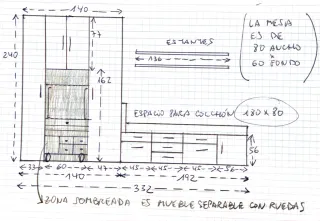 140
LA MESA
ES DE
80 ANCHO
X
60 FONDO
ESTANTES
136
77
240
162
ESPACIO PARA COLCHÓN 180 X 80
56
33 60 47 45 45 45 56
140 192
332
ZONA SOMBREADA ES MUEBLE SEPARABLE CON RUEDAS